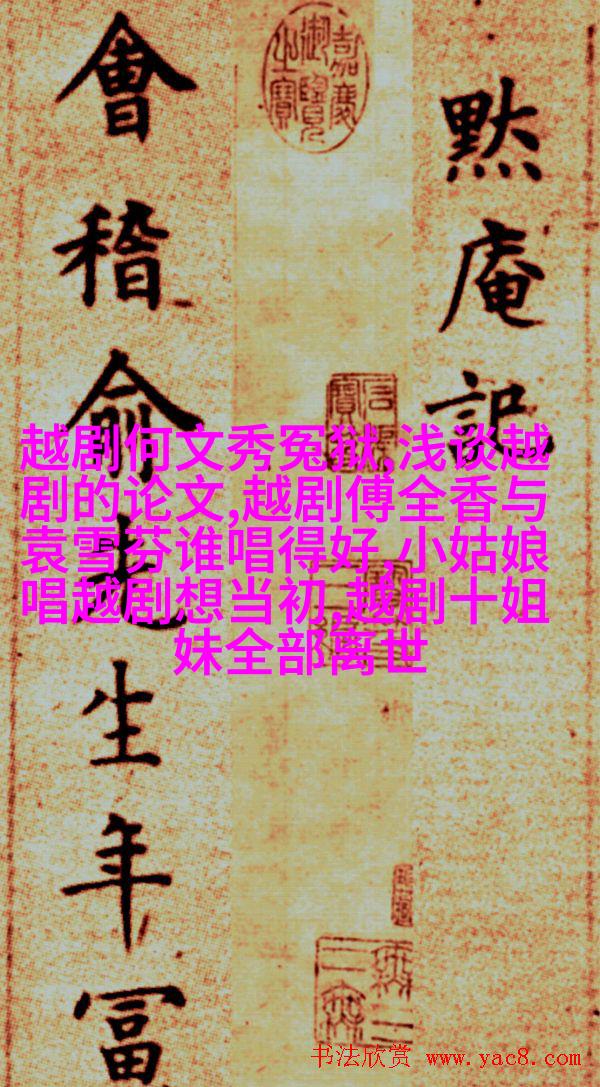 黙庵記
嘉慶御覽之寶
會稽俞先生年冨
越剧何文秀冤狱,浅谈越
剧的论文,越剧傅全香与
袁雪芬谁唱得好,小姑娘
唱越剧想当初,越剧十姐
妹全部离世
书法欣赏 www.yac8.com